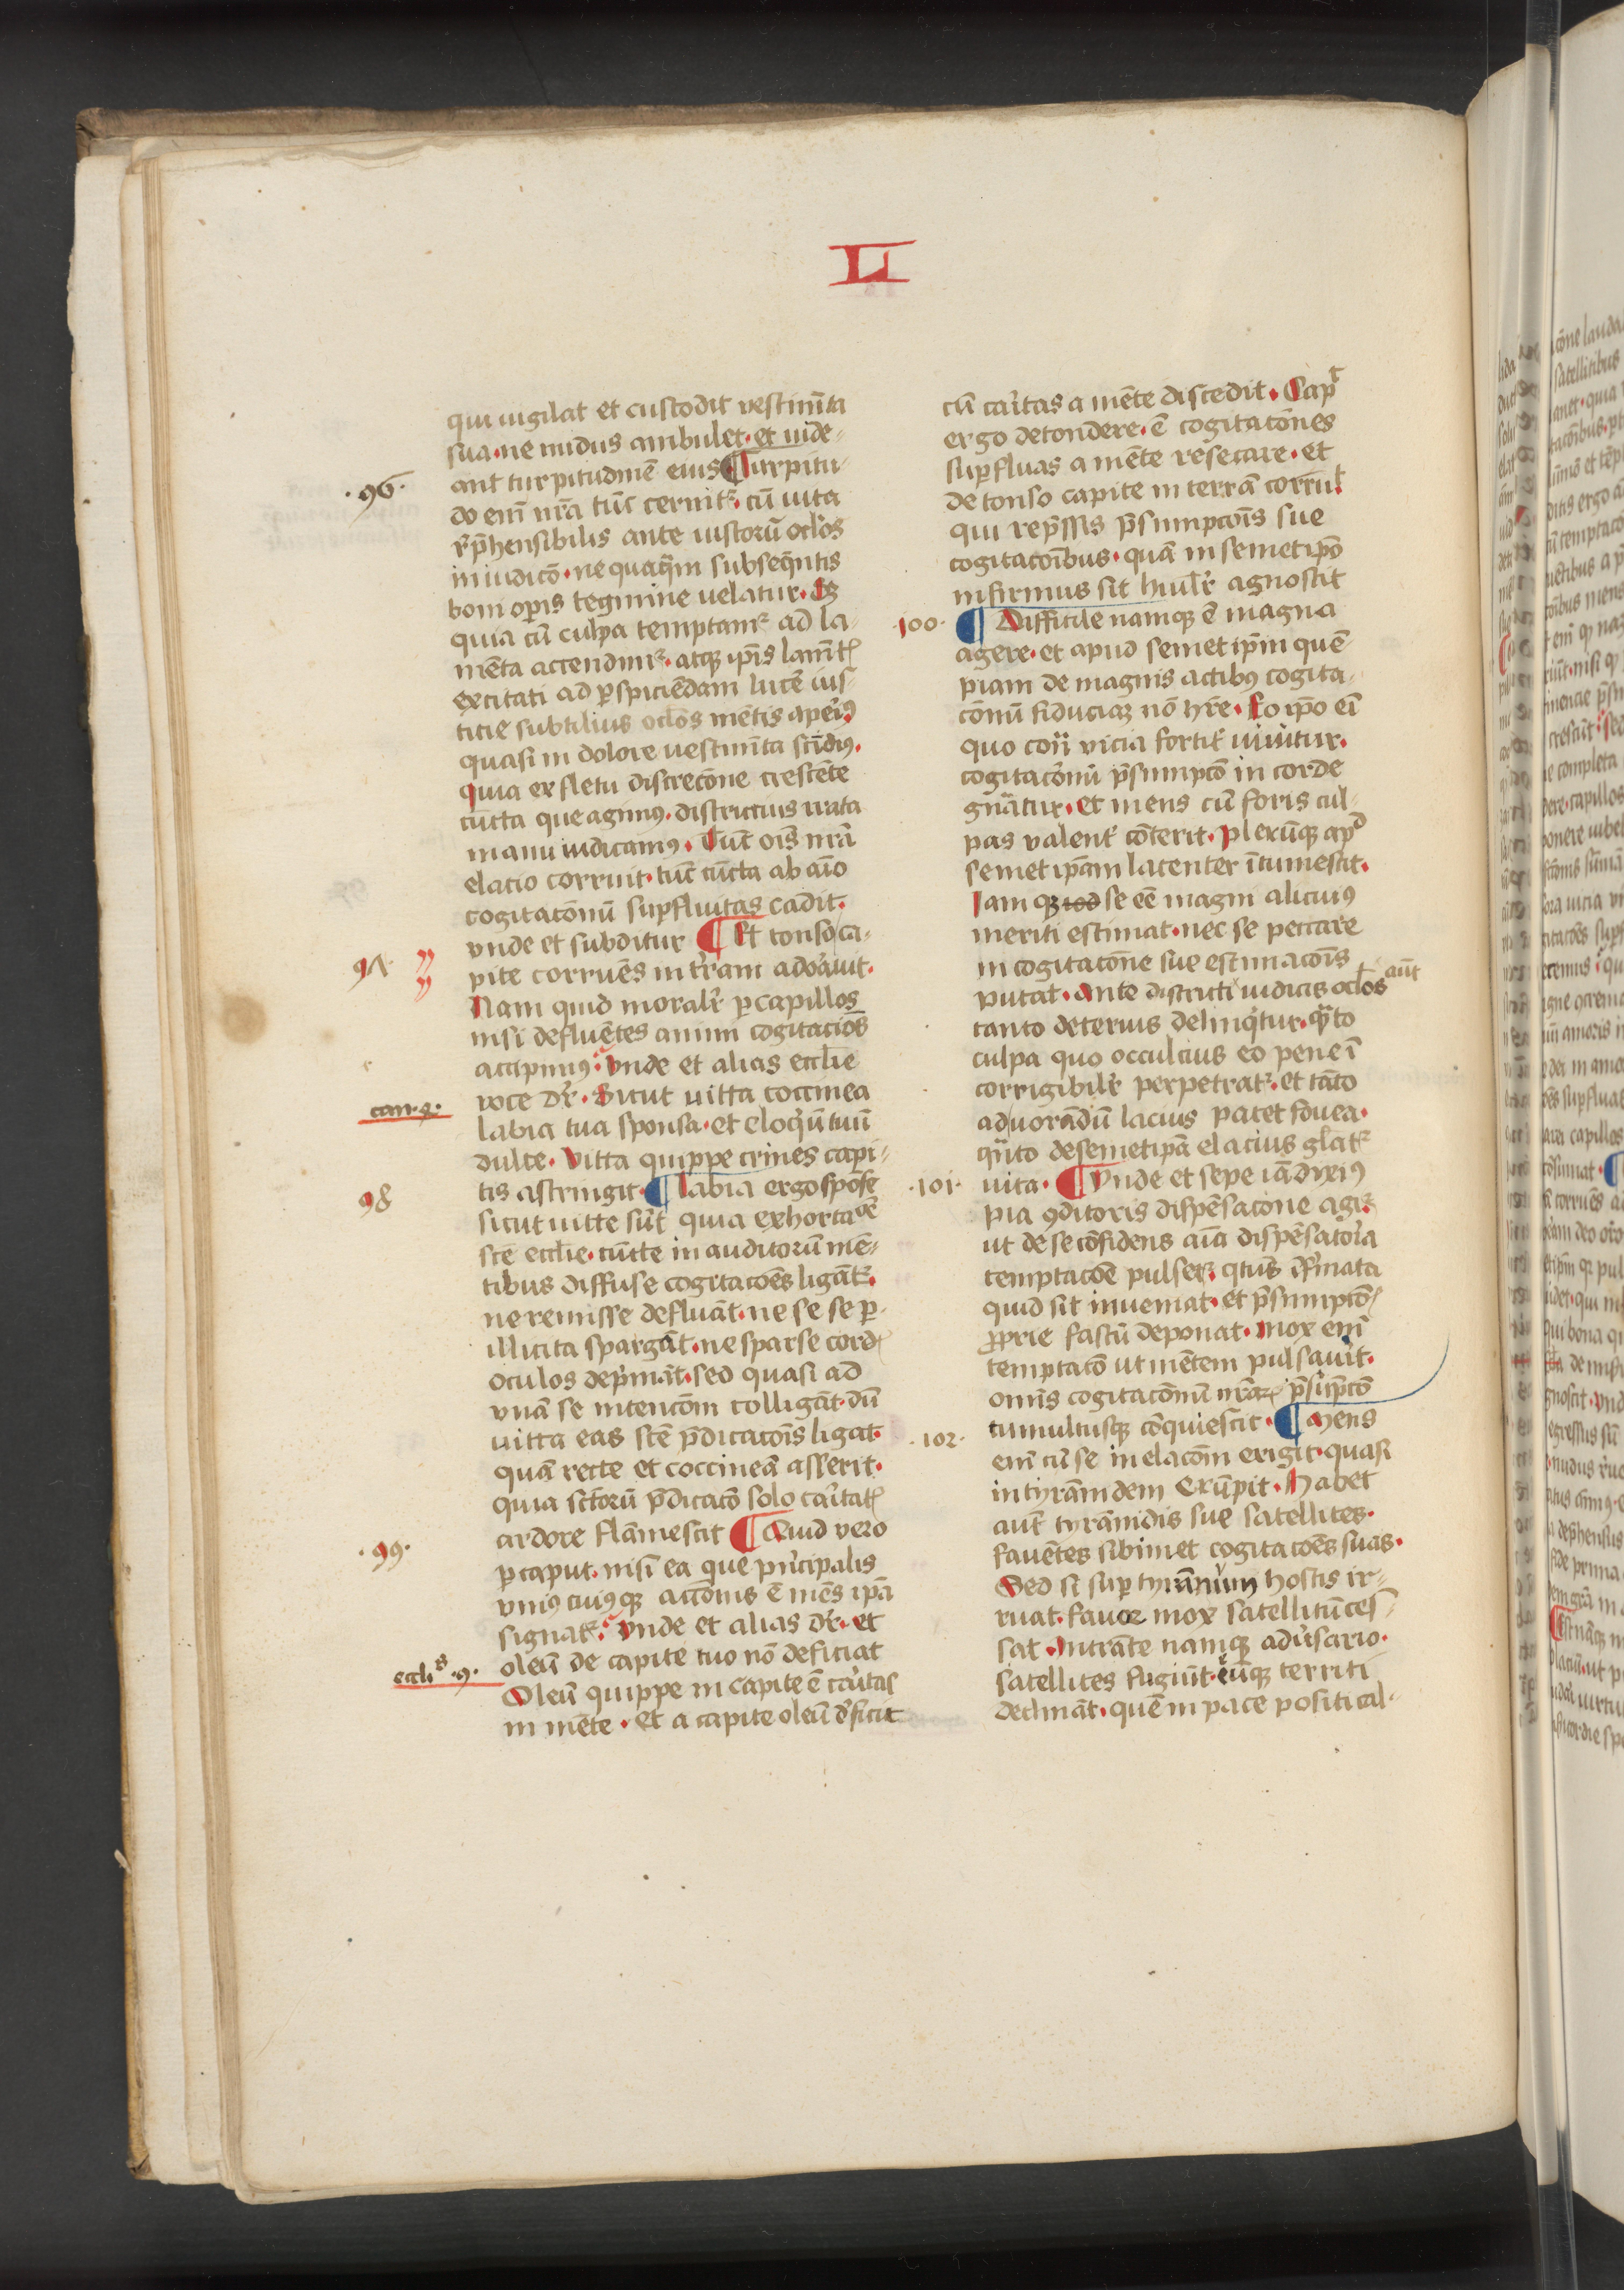 LI
qui uigilat et custodit vestim̄ta
sua· ne nudus ambulet· et uide-
ant turpitudinē eius ¶ Turpitu-
·96·
do eni᷑ nr̄a tūc cernit᷑· cū uita
rep̄hensibilis ante iustorū oc̄los
in iudicō· ne quaq̄m subseq̄ntis
boni oꝑis tegmine uelatur· Sꝫ
quia cū culpa temptam᷑ ad la-
mēta accendim᷑· atqꝫ ip̄is lam̄tꝭ
excitati ad ꝑspiciēdam lucē ius-
ticie subtilius oc̄los mētis aperimꝰ
quasi in dolore uestim̄ta scīdimꝰ·
Quia ex fletu discrecōne crescēte
cūcta que agimꝰ· districtius irata
manu iudicamꝰ· Tūc ois̄ nr̄a
elacio corruit· tūc cūcta ab aīo
cogitacōnū suꝑfluitas cadit·
vnde et subditur ¶ Et tonso ca-
97·
pite corruēs in tr̄ram adorauit·
Nam quid moralr̄ ꝑ capillos
nisi defluētes animi cogitacio̅s
accipimꝰ· Vnde et alias eccl̄ie
can·4·
voce dr̄· Sicut uitta coccinea
labia tua sponsa· et eloq̄ūtuū
dulce· Vitta quippe crines capi-
98
tis astringit· ¶ Labia ergo spōse
sicut uitte sūt quia exhortacōē
scē eccl̄ie· cūcte in auditorū mē-
tibus diffuse cogitacōes ligāt᷑·
ne remisse defluāt· ne se se ꝑ-
illicita spargāt· ne sparse cordꝭ
oculos dep̄māt· sed quasi ad
vnā se intencōm colligāt· dū
uitta eas scē p̄dicacōis ligat·
quā recte et coccineā asserit·
quia sctōrū p̄dicacō solo caritatꝭ
ardore flāmescit ¶ Quid vero
·99·
ꝑ caput· nisi ea que p̄ncipalis
vniꝰcuiꝰqꝫ accōnis ē mēs ip̄a
signat᷑· Vnde et alias dr̄· et
eccliˢ·9·
oleū de capite tuo nō deficiat
Oleū quippe in capite ē caritas
in mēte· et a capite oleū deficit
cū caritas a mēte discedit· Capᵗ
ergo detondere· ē cogitacōnes
suꝑfluas a mēte resecare· et
detonso capite in terrā corruit
qui rep̄ssis p̄sumpcōis sue
cogitacōibus· quā in semetip̄o
infirmus sit humilr̄ agnoscit
·100·
¶ Difficile namqꝫ ē magna
agere· et apud semet ip̄m quē-
piam de magnis actibꝰ cogita-
cōnū fiduciaꝫ nō hr̄e· Eo ip̄o eī
quo cōtͣ vicia fortit᷑ uiuitur·
cogitacōnū p̄sumpcō in corde
gn̄atur· et mens cū foris cul-
pas valent᷑ cōterit· plerūqꝫ apᵈ
semet ip̄am latenter ītumescit·
Iam qꝫ se eē magni alicuiꝰ
meriti estimat· nec se peccare
in cogitacōne sue estimacōis
putat· Ante districti iudicis oc̄los aūt
tanto deterius delinq̄tur· qͣto
culpa quo occulcius eo pene ī
corrigibilr̄ perpetrat᷑· et tāto
ad uorādū lacius patet fouea·
qͣnto de semetip̄a elacius gl̄at᷑
·101·
uita· ¶ Vnde et sepe iā diximꝰ
pia ꝯditoris dispēsacōne agit᷑·
ut de se cōfidens aīa dispēsatoria
temptacōē pulset᷑· qtūs īfirmata
quid sit inueniat· et p̄sumpcōꝭ
ꝓprie fastū deponat· Mox eni᷑
temptacō ut mētem pulsauit·
omīs cogitacōnū nr̄arꝫ p̄sūpcō
tumultusqꝫ cōquiescit· ¶ Mens
·102·
eni᷑ cū se in elacōm erigit· quasi
in tyrāni dem erūpit· Habet
aut̄ tyrānidis sue satellites·
fauētes sibimet cogitacōes suas·
Sed si suꝑ tyrānum hostis ir-
ruat· fauor mox satellitū ces-
sat· Intrāte namqꝫ aduersario·
satellites fugiūt· eūqꝫ territi
declināt· quē in pace positi cal-